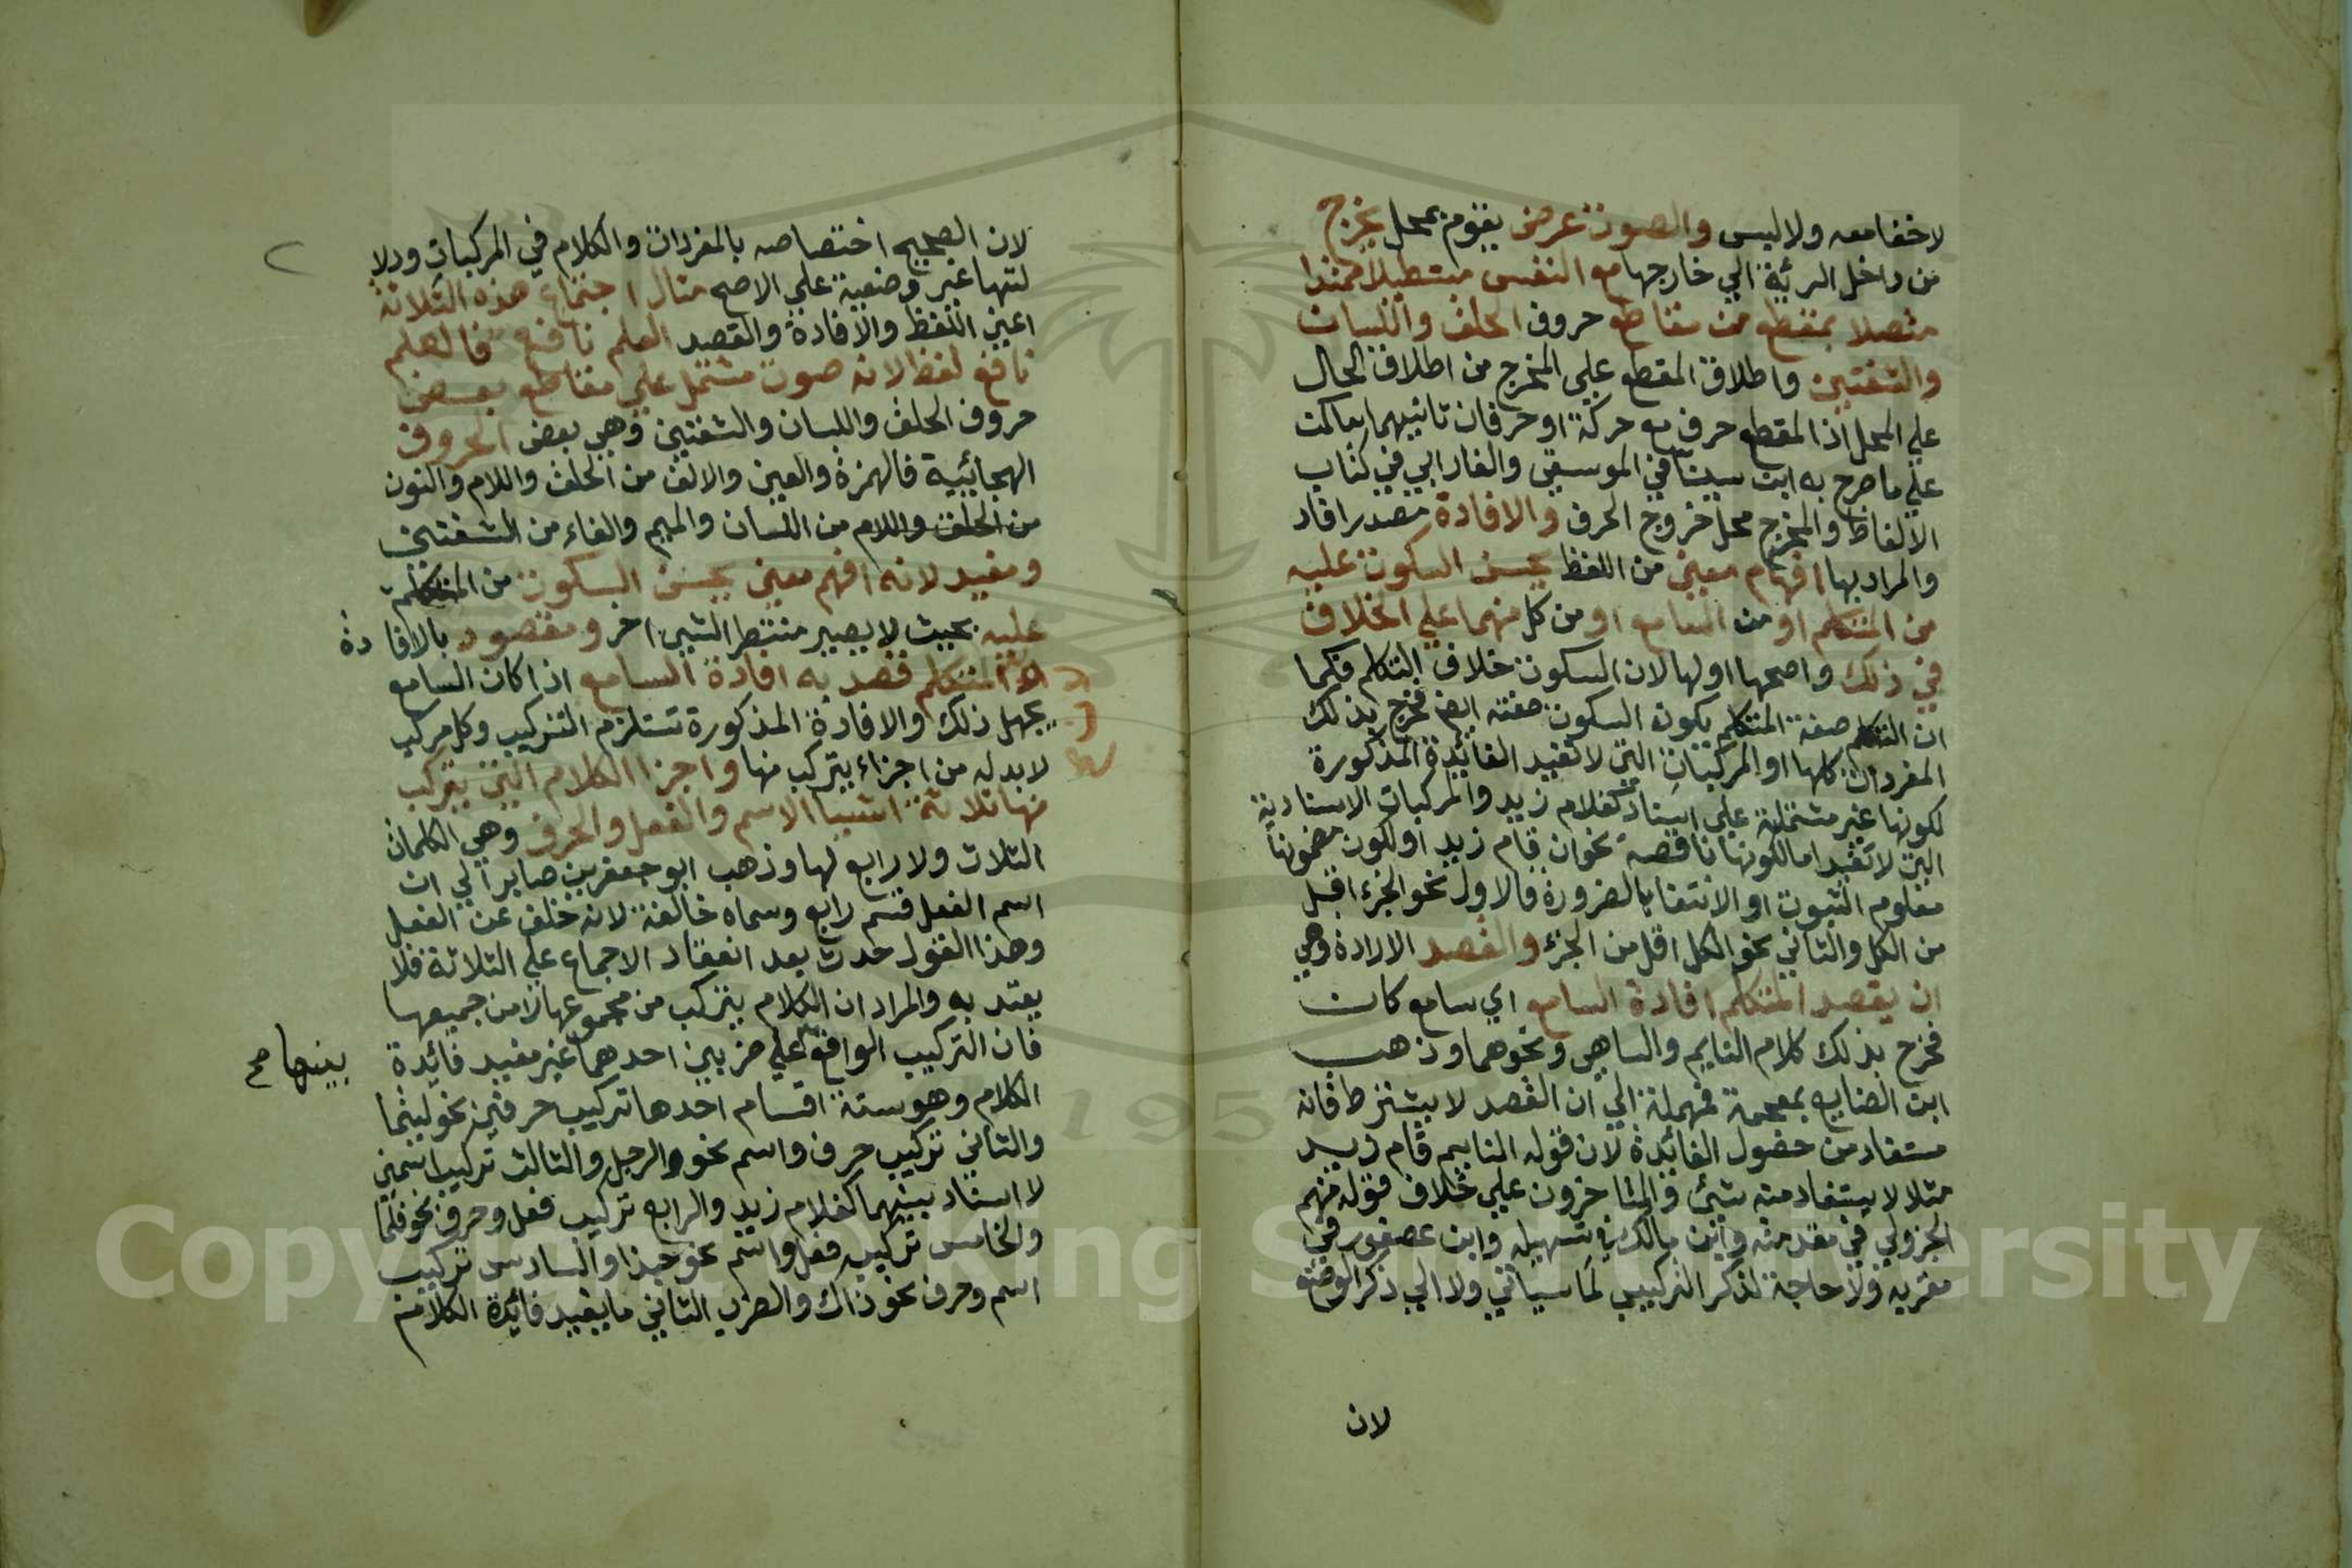 لاخفا معه ولا لبس والصوت عرض يقوم بمحل يخرج
من داخل الرئة الي خارجها مع النفس مستطيلا ممتدا
متصلا بمقطع من مقاطع حروف الحلق واللسان
والشفتين واطلاق المقطع علي المخرج من اطلاق الحال
علي المحل اذ المقطع حرف مع حركة او حرفان ثانيهما ساكن
علي ما صرح به ابن سينا في الموسيقي والفارابي في كتاب
الالفاظ والمخرج محل خروج الحرف والافادة مصدر افاد
والمراد بها افهام معني من اللفظ يحسن السكوت عليه
من المتكلم او من السامع او من كل منهما علي الخلاف
في ذلك واصحها اولها لان السكوت خلاف التكلم فكما
ان التكلم صفة المتكلم يكون السكوت صفته ايضا فخرج بذلك
المفردات كلها او المركبات التي لا تفيد الفائدة المذكورة
لكونها غير مشتملة علي اسناد كغلام زيد والمركبات الاسنادية
التي لا تفيد اما لكونها ناقصة نحو ان قام زيد او لكون مضمونها
معلوم الثبوت او الانتفا بالضرورة فالاول نحو الجزء اقل
من الكل والثاني نحو الكل اقل من الجزء والقصد الارادة وهي
ان يقصد المتكلم افادة السامع اي سامع كان
فخرج بذلك كلام النايم والساهي ونحوهما وذهب
ابن الضايع بمعجمة فمهملة الي ان القصد لا يشترط فانه
مستفاد من حصول الفائدة لان قوله النايم قام زيد
مثلا لا يستفاد منه شئ والمتاخرون علي خلاف قوله منهم
الجزولي في مقدمته وابن مالك في تسهيله وابن عصفور في
مقربه ولا حاجة لذكر التركيب لما سياتي ولا الي ذكر الوضع
لان
لان الصحيح اختصاصه بالمفردات والكلام في المركبات ودلا
لتها غير وضعية علي الاصح مثال اجتماع هذه الثلاثة
اعني اللفظ والافادة والقصد العلم نافع فالعلم
نافع لفظ لانه صوت مشتمل علي مقاطع بعض
حروف الحلق واللسان والشفتين وهي بعض الحروف
الهجائية فالهمزة والعين والالف من الحلق واللام والنون
من الحلق واللام من اللسان والميم والفاء من الشفتين
ومفيد لانه افهم معني يحسن السكوت من المتكلم
عليه بحيث لا يصير منتظرا لشئ اخر ومقصود بالافادة
لان المتكلم قصد به افادة السامع اذا كان السامع
يجهل ذلك والافادة المذكورة تستلزم التركيب وكل مركب
لا بد له من اجزاء يتركب منها واجزا الكلام التي يتركب
منها ثلاثة اشيا الاسم والفعل والحرف وهي الكلمات
الثلاث ولا رابع لها وذهب ابو جعفر بن صابر الي ان
اسم الفعل قسم رابع وسماه خالفة لانه خلف عن الفعل
وهذا القول حدث بعد انعقاد الاجماع علي الثلاثة فلا
يعتد به والمراد ان الكلام يتركب من مجموعها لا من جميعها
فان التركيب الواقع علي ضربين احدهما غير مفيد فائدة
بينها صح
الكلام وهو ستة اقسام احدها تركيب حرفين نحو ليتما
والثاني تركيب حرف واسم نحو الرجل والثالث تركيب اسمين
لا اسناد بينهما كغلام زيد والرابع تركيب فعل وحرف نحو قلما
والخامس تركيب فعل واسم نحو حبذا والسادس تركيب
اسم وحرف نحو ذاك والضرب الثاني ما يفيد فائدة الكلام
Copyright © King Saud University
1957